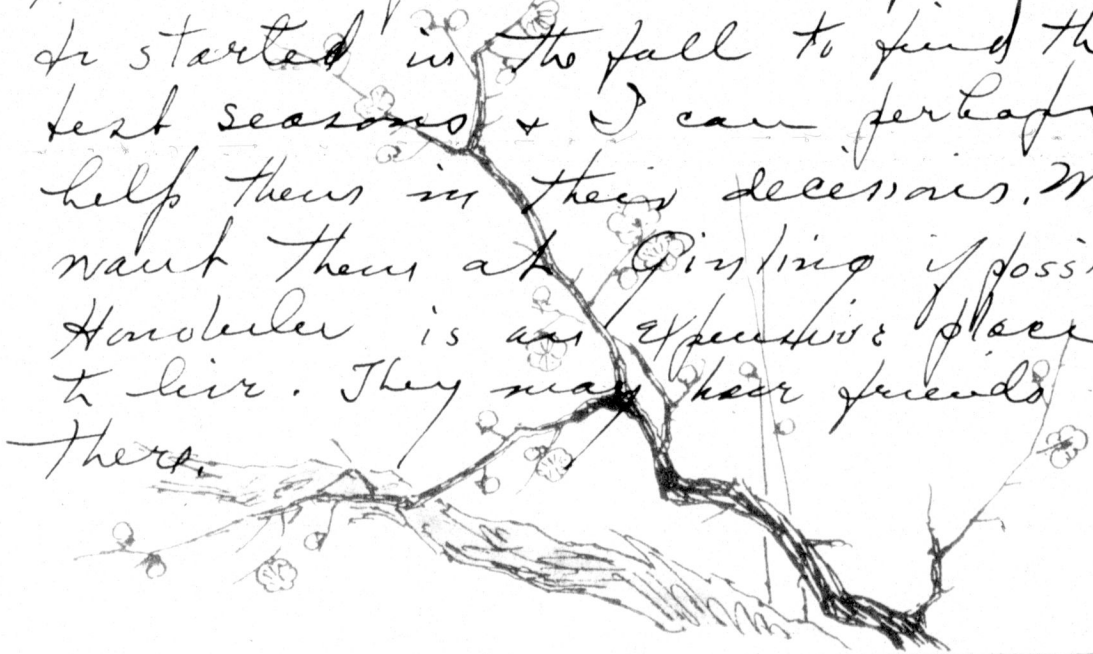 be started in the fall to find th
test seasons & I can perhaps
help them in their decisions. W
want them at Ginling if possi
Honolulu is an expensive place
to live. They may have friends
there.